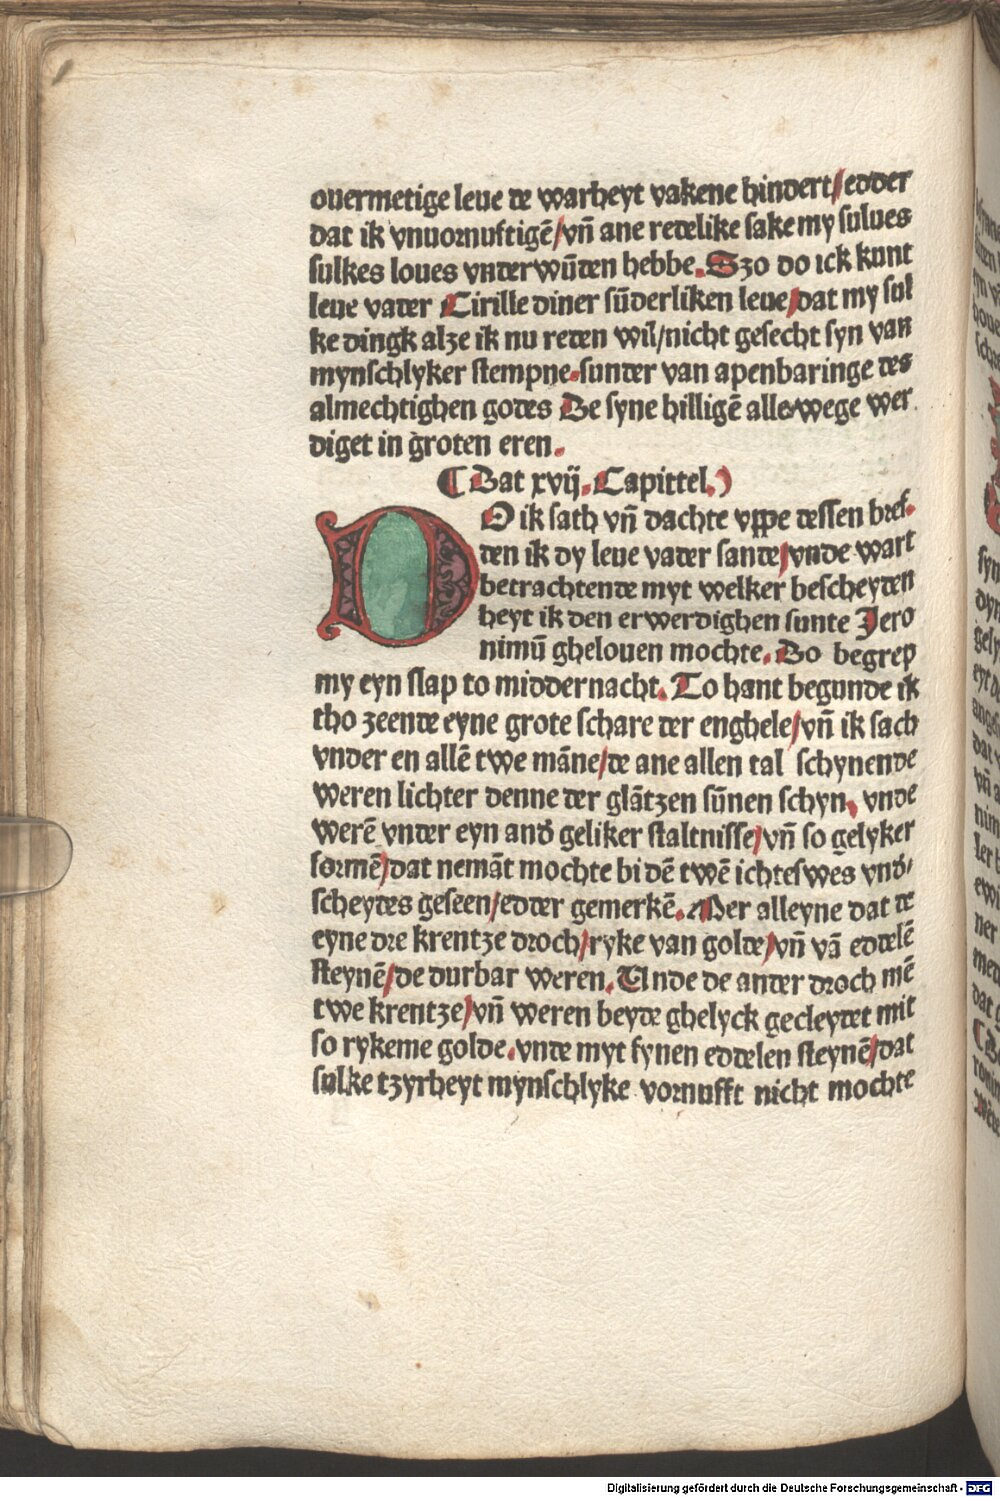 ouermetige leue de warheyt vakene hindert/edder
dat ik vnuornuftigē/vn̄ ane redelike sake my sulues
sulkes loues vnderwūden hebbe. Szo do ick kunt
leue vader Cirille diner sūderliken leue/dat my sul
ke dingk alze ik nu reden wil/nicht gesecht syn van
mynschlyker stempne.sunder van apenbaringe des
almechtighen godes De syne hilligē allewege wer
diget in groten eren.
Dat xvij. Capittel.
DO ik sath vn̄ dachte vppe dessen bref.
den ik dy leue vader sande/vnde wart
betrachtende myt welker bescheyden
heyt ik den erwerdighen sunte Jero
nimū ghelouen mochte. Do begrep
my eyn slap to middernacht. To hant begunde ik
tho zeende eyne grote schare der enghele/vn̄ ik sach
vnder en allē twe māne/de ane allen tal schynende
weren lichter denne der glātzen sūnen schyn, vnde
werē vnder eyn and̄ geliker staltnisse/vn̄ so gelyker
formē/dat nemāt mochte bi dē twē ichteswēs vnd̄/
scheydes geseen/edder gemerkē. Mer alleyne dat de
eyne dre krentze droch/ryke van golde/vn̄ vā eddelē
steynē/de durbar weren. Unde de ander droch mē
twe krentze/vn̄ weren beyde ghelyck gecleydet mit
so rykeme golde.vnde myt fynen eddelen steynē/dat
sulke tzyrheyt mynschlyke vornufft nicht mochte
Digitalisierung gefördert durch die Deutsche Forschungsgemeinschaft - DFG